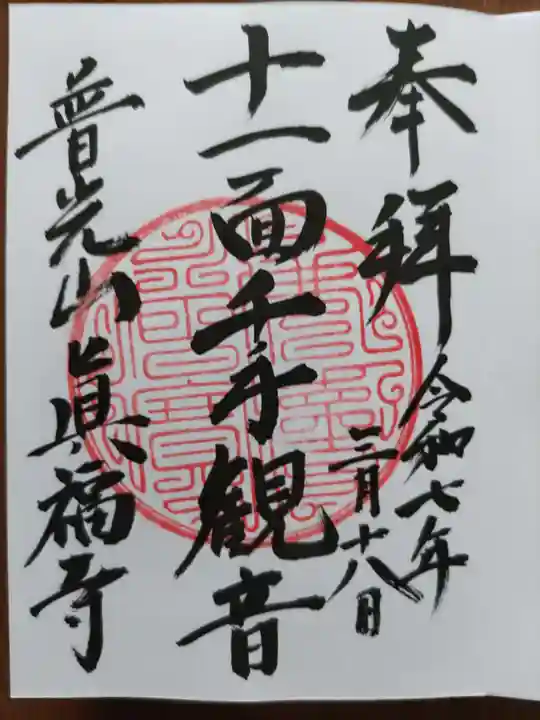 奉拝
令和七年
三月十八日
十一面千手観音
普光山眞福寺